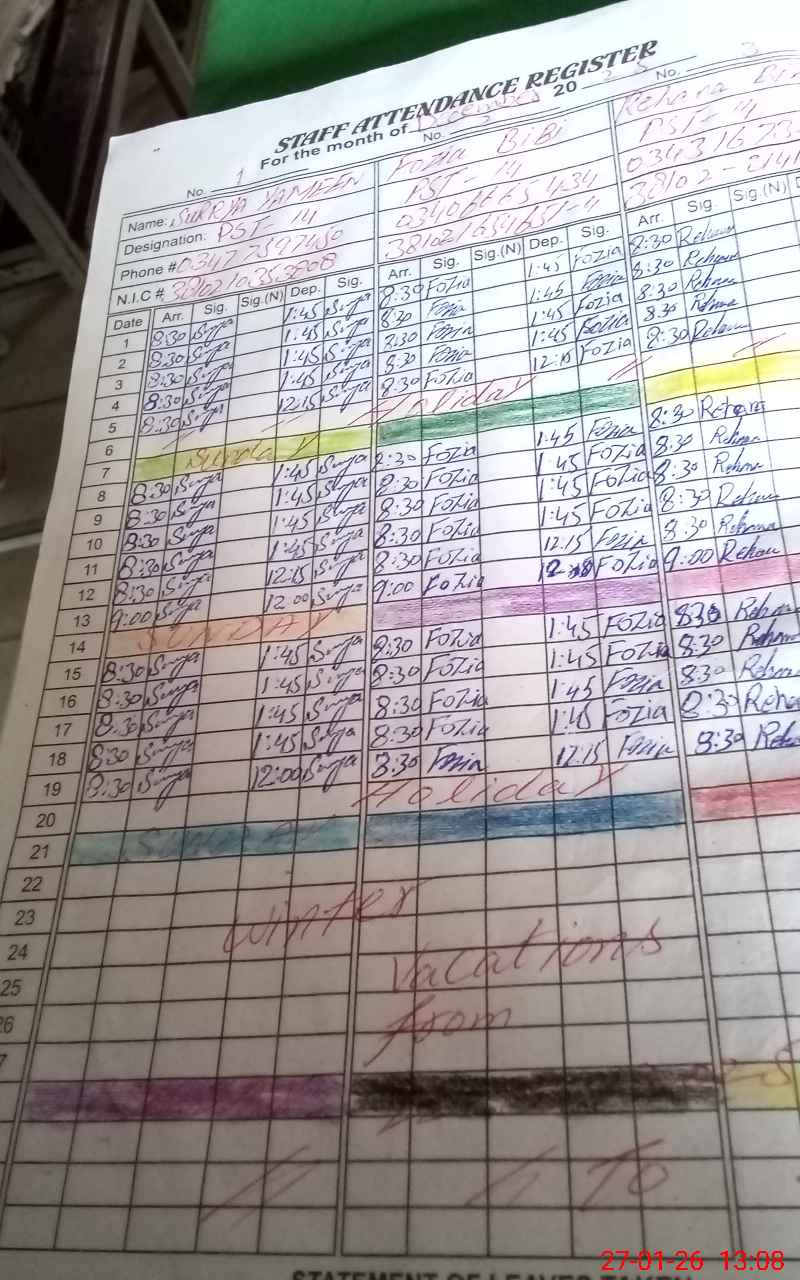 STAFF ATTENDANCE REGISTER
For the month of December 20 25
No. 1 No. 2 No. 3
Name: SURRYA YAMEEN Fozia BiBi Rehana Bi
Designation: PST- 14 PST- 14 PST- 14
Phone # 03477597450 03406665434 0343167
N.I.C # 3810210353808 3810216546514 38102-
Date Arr. Sig. Sig.(N) Dep. Sig. Arr. Sig. Sig.(N) Dep. Sig. Arr. Sig. Sig.(N)
1 8:30 Surya 1:45 Surya 8:30 Fozia 1:45 Fozia 8:30 Rehana
2 8:30 Surya 1:45 Surya 8:30 Fozia 1:45 Fozia 8:30 Rehana
3 8:30 Surya 1:45 Surya 8:30 Fozia 1:45 Fozia 8:30 Rehana
4 8:30 Surya 1:45 Surya 8:30 Fozia 1:45 Fozia 8:30 Rehana
5 8:30 Surya 12:15 Surya 8:30 Fozia 12:15 Fozia 8:30 Rehana
6 Holiday
7 Sunday
8 8:30 Surya 1:45 Surya 8:30 Fozia 1:45 Fozia 8:30 Rehana
9 8:30 Surya 1:45 Surya 8:30 Fozia 1:45 Fozia 8:30 Rehana
10 8:30 Surya 1:45 Surya 8:30 Fozia 1:45 Fozia 8:30 Rehana
11 8:30 Surya 1:45 Surya 8:30 Fozia 1:45 Fozia 8:30 Rehana
12 8:30 Surya 12:15 Surya 8:30 Fozia 12:15 Fozia 8:30 Rehana
13 9:00 Surya 12:00 Surya 9:00 Fozia Fozia 9:00 Rehana
14 SUNDAY
15 8:30 Surya 1:45 Surya 8:30 Fozia 1:45 Fozia 8:30 Rehana
16 8:30 Surya 1:45 Surya 8:30 Fozia 1:45 Fozia 8:30 Rehana
17 8:30 Surya 1:45 Surya 8:30 Fozia 1:45 Fozia 8:30 Rehana
18 8:30 Surya 1:45 Surya 8:30 Fozia 1:45 Fozia 8:30 Reha
19 8:30 Surya 12:00 Surya 8:30 Fozia 12:15 Fozia 8:30 Reha
20 Holiday
21 SUNDAY
22
23 Winter
24 Vacations
25
26 from
7
To
27-01-26 13:08